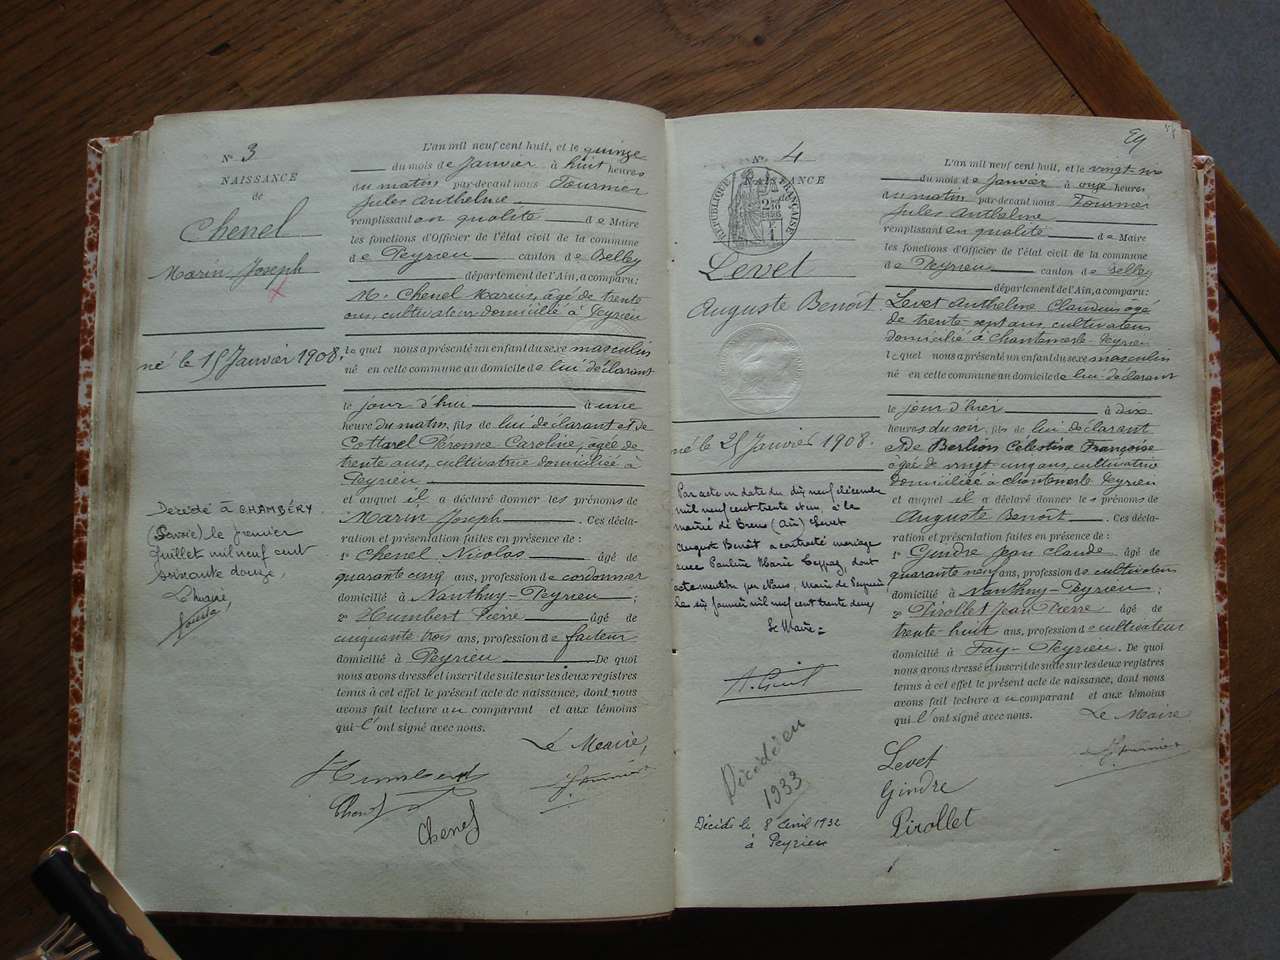 N° 3
NAISSANCE
de
Chenel
Marin Joseph
né le 15 Janvier 1908.
Décédé à CHAMBÉRY.
(Savoie) le premier
Juillet mil neuf cent
soixante douze,
Le Maire
L'an mil neuf cent huit, et le quinze
du mois de Janvier à huit heures
du matin par-devant nous Fournier
Jules Anthelme
remplissant en qualité de Maire
les fonctions d'Officier de l'état civil de la commune
de Peyrieu canton de Belley
département de l'Ain, a comparu:
M. Chenel Marius, âgé de trente
ans, cultivateur domicilié à Peyrieu
lequel nous a présenté un enfant du sexe masculin
né en cette commune au domicile de lui déclarant
le jour d'hui à une
heure du matin, fils de lui déclarant et de
Cottarel Péronne Caroline, agée de
trente ans, cultivatrice domiciliée à
Peyrieu
et auquel il a déclaré donner les prénoms de
Marin Joseph. Ces décla-
ration et présentation faites en présence de :
1° Chenel Nicolas âgé de
quarante cinq ans, profession de cordonnier
domicilié à Nanthuy-Peyrieu ;
2° Humbert Pierre âgé de
cinquante trois ans, profession de facteur
domicilié à Peyrieu De quoi
nous avons dressé et inscrit de suite sur les deux registres
tenus à cet effet le présent acte de naissance, dont nous
avons fait lecture au comparant et aux témoins
qui l'ont signé avec nous.
Le Maire,
Humbert
Chenel
Fournier
Chenel
N° 4
NAISSANCE
RÉPUBLIQUE FRANÇAISE
Levet
Auguste Benoit.
né le 25 Janvier 1908.
Par acte en date du dix neuf décembre
mil neuf cent trente et un à la
mairie de Brens (Ain) Levet
Auguste Benoît a contracté mariage
avec Pauline Marie, dont
acte mention par Nous, Maire de Peyrieu
le six Janvier mil neuf cent trente deux
Le Maire:
Décédé en
1933
Décédé le 8 Avril 1932
à Peyrieu
L'an mil neuf cent huit, et le vingt-six
du mois de Janvier à onze heures
du matin par-devant nous Fournier
Jules Anthelme
remplissant en qualité de Maire
les fonctions d'Officier de l'état civil de la commune
de Peyrieu canton de Belley
département de l'Ain, a comparu:
Levet Anthelme Claudius agé
de trente-sept ans, cultivateur
domicilié à Chantemerle-Peyrieu
lequel nous a présenté un enfant du sexe masculin
né en cette commune au domicile de lui-déclarant
le jour d'hier à dix
heures du soir, fils de lui déclarant
et De Berlion Célestine Françoise
âgée de vingt cinq ans, cultivatrice
domiciliée à chantemerle Peyrieu
et auquel il a déclaré donner les prénoms de
Auguste Benoît. Ces décla-
ration et présentation faites en présence de :
1° Gindre Jean Claude âgé de
quarante neuf ans, profession de cultivateur
domicilié à Nanthuy-Peyrieu ;
2° Pirollet Jean Pierre âgé de
trente-huit ans, profession de cultivateur
domicilié à Fay-Peyrieu. De quoi
nous avons dressé et inscrit de suite sur les deux registres
tenus à cet effet le présent acte de naissance, dont nous
avons fait lecture au comparant et aux témoins
qui l'ont signé avec nous.
Le Maire
Levet
Fournier
Gindre
Pirollet